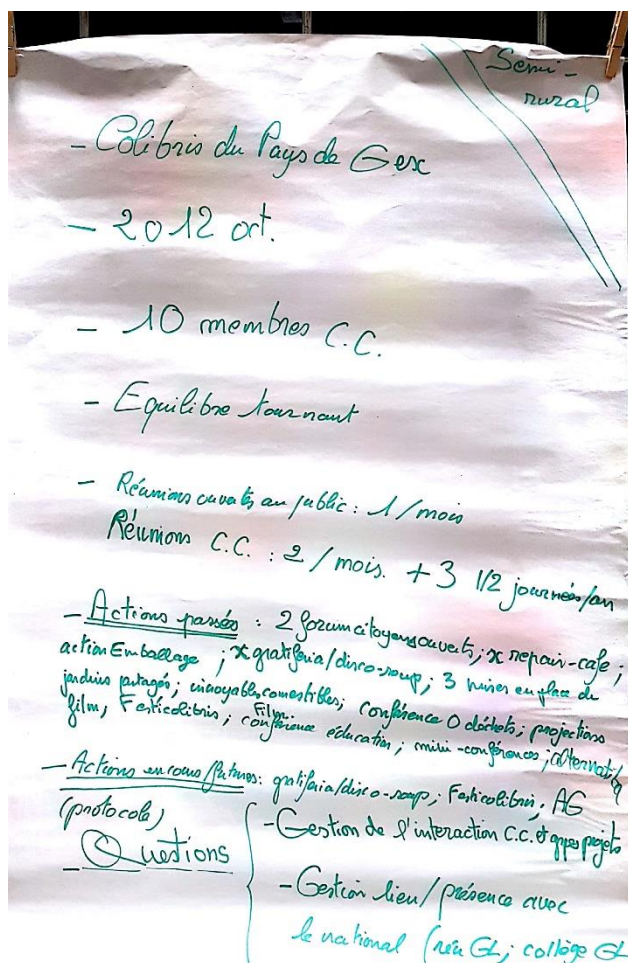 Semi-
rural
- Colibris du Pays de Gex
- 2012 oct.
- 10 membres C.C.
- Equilibre tournant
- Réunions ouvertes au public : 1/mois
Réunions C.C. : 2/mois. + 3 1/2 journées/an
- Actions passées : 2 forum citoyens ouverts ; x repair-cafe ;
action Emballage ; x gratiferia/disco-soup ; 3 mises en place de
jardins partagés ; incroyables comestibles ; conférence 0 déchets ; projections
film, Festicolibris ; Film conférence éducation ; mini-conférences ;
- Actions en cours/futures : gratiferia/disco-soup ; Festicolibri, AG
(protocole)
- Questions
- Gestion de l'interaction C.C. et projets
- Gestion lien/présence avec
le national (GL ; collège GL